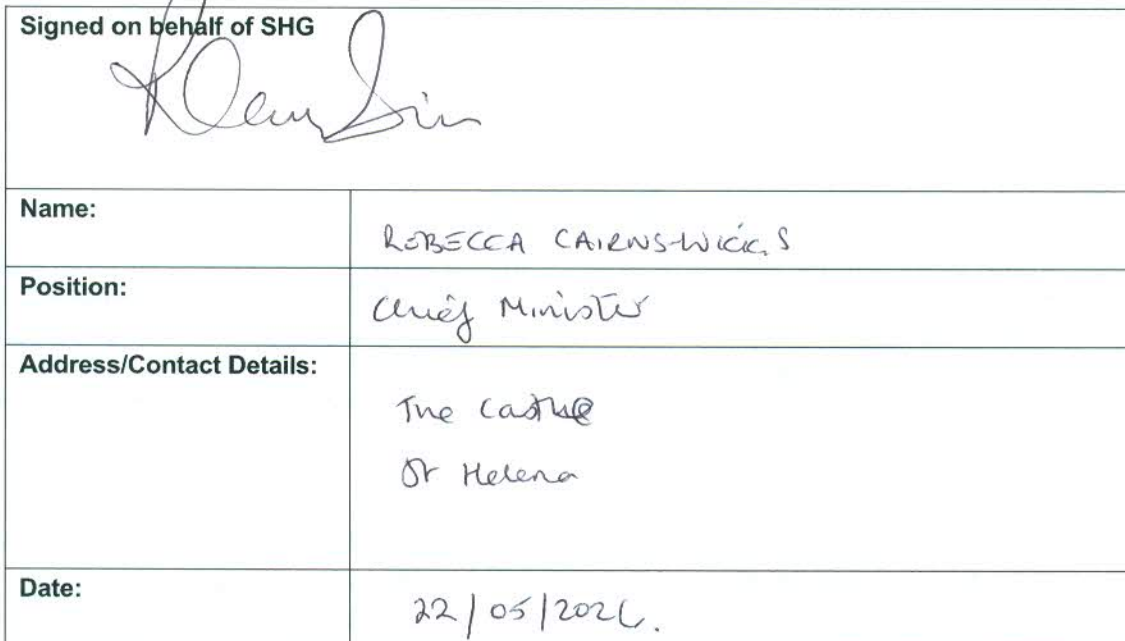 Signed on behalf of SHG
Name:
REBECCA CAIRNS-WICKS
Position:
Chief Minister
Address/Contact Details:
The Castle
St Helena
Date:
22/05/2026.